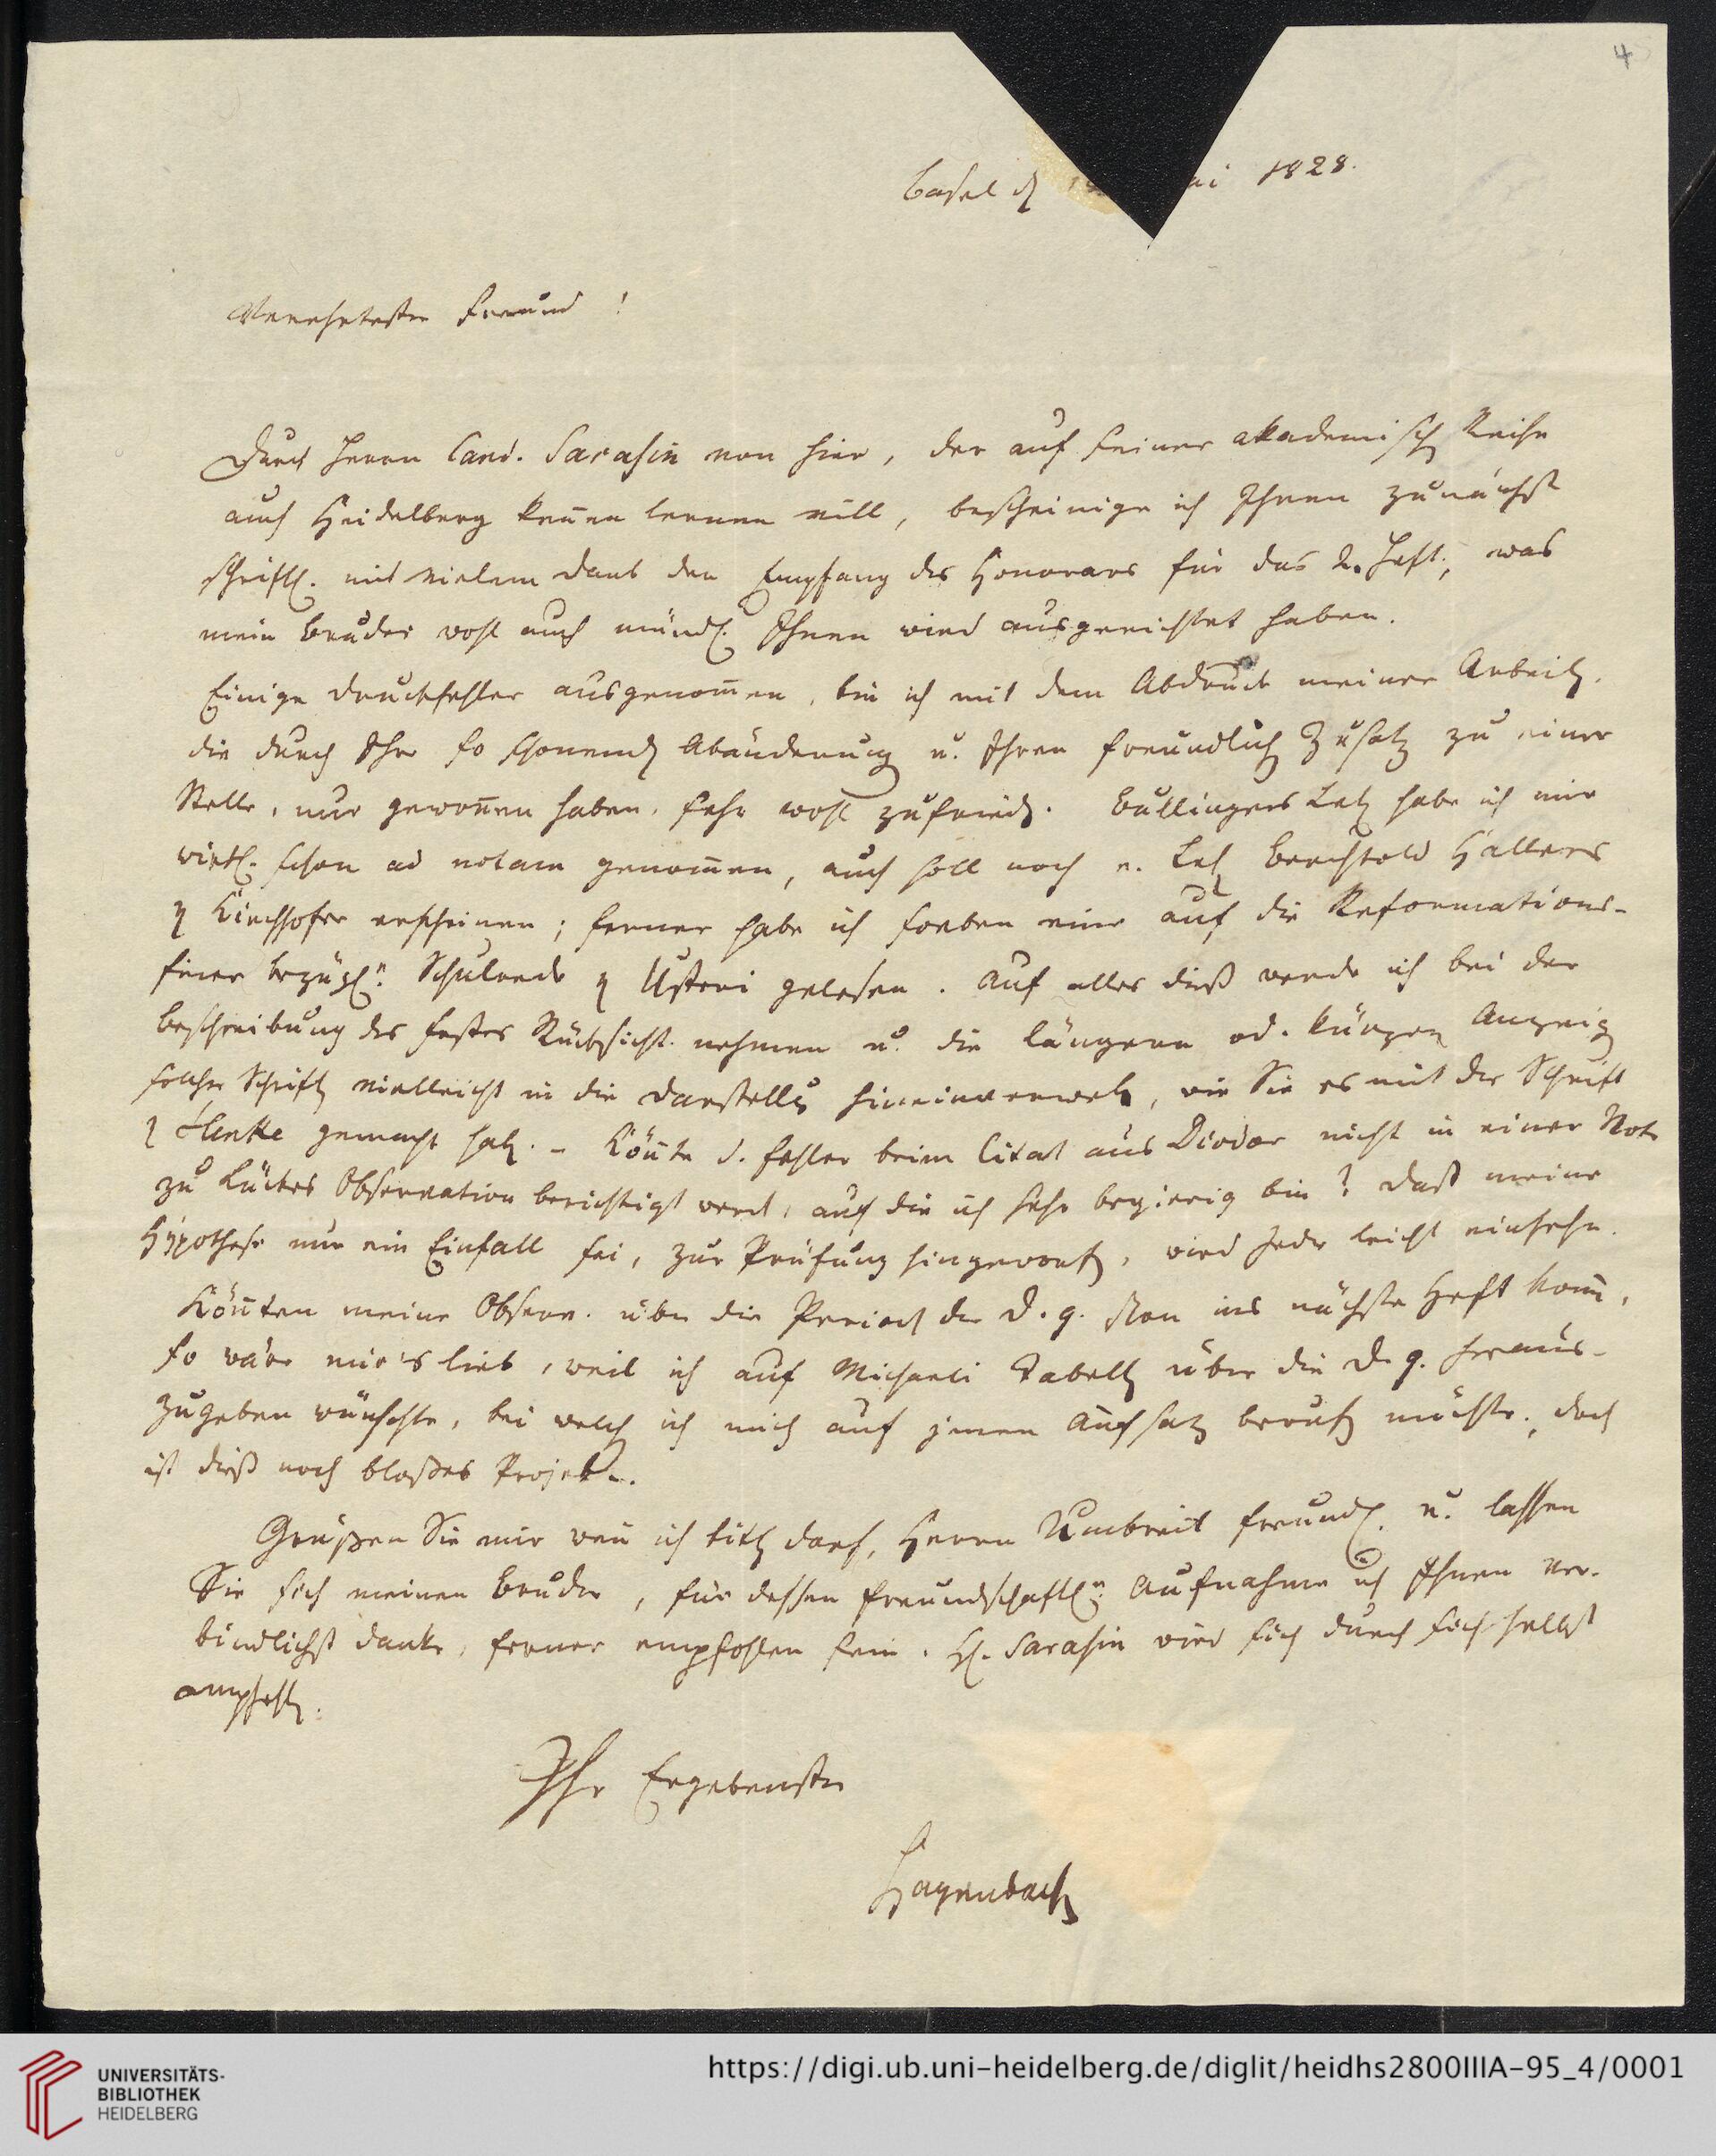 4
Basel d 1 ai 1828.
Verehrtester Freund!
Durch Herrn Cand. Sarasin von hier, der auf seiner akademisch Reise
auch Heidelberg kennen lernen will, bescheinige ich Ihnen zunächst
schriftl. mit vielem Dank den Empfang des Honorars für das 2. Heft, was
mein Bruder wohl auch mündl. Ihnen wird ausgerichtet haben.
Einige Druckfehler ausgenom̄en, bin ich mit dem Abdruck meiner Arbeit,
die durch Ihre so schonend Abänderung u. Ihren freundlich Zusatz zu einer
Stelle, nur gewon̄en haben, sehr wohl zufried. Bullingers Leb habe ich mir
wirkl. schon ad notam genom̄en, auch soll noch e. Leb Berchtold Hallers
v Kirchhofer erscheinen; ferner habe ich soeben eine auf die Reformations-
feier bezügl. Schulrede v Usteri gelesen. Auf alles dieß werde ich bei der
Beschreibung des Festes Rücksicht nehmen u. die längern od. kürzern Anzeig
solcher Schrift vielleicht in die Darstellg hineinverweb, wie Sie es mit der Schrift
v Henke gemacht hab. – Kön̄te d. Fehler beim Citat aus Diodor nicht in einer Note
zu Lückes Observation berichtigt werd, auf die ich sehr begierig bin? Daß meine
Hypothese nur ein Einfall sei, zur Prüfung hingeworf, wird Jeder leicht einsehn.
Kön̄ten meine Observ. über die Period der D. g. schon ins nächste Heft kom̄,
so wäre mir's lieb, weil ich auf Michaeli Tabell über die D. g. heraus-
zugeben wünschte, bei welch ich mich auf jenen Aufsatz beruf möchte; doch
ist dieß noch bloßes Projekt.
Grüßen Sie mir wen̄ ich bitt darf, Herrn Umbreit freundl. u. lassen
Sie sich meinen Bruder, für dessen freundschaftl. Aufnahme ich Ihnen ver-
bindlichst danke, ferner empfohlen sein. H. Sarasin wird sich durch sich selbst
empfehl.
Ihr Ergebenster
Hagenbach
UNIVERSITÄTS-
BIBLIOTHEK
HEIDELBERG
https://digi.ub.uni-heidelberg.de/diglit/heidhs2800IIIA-95_4/0001